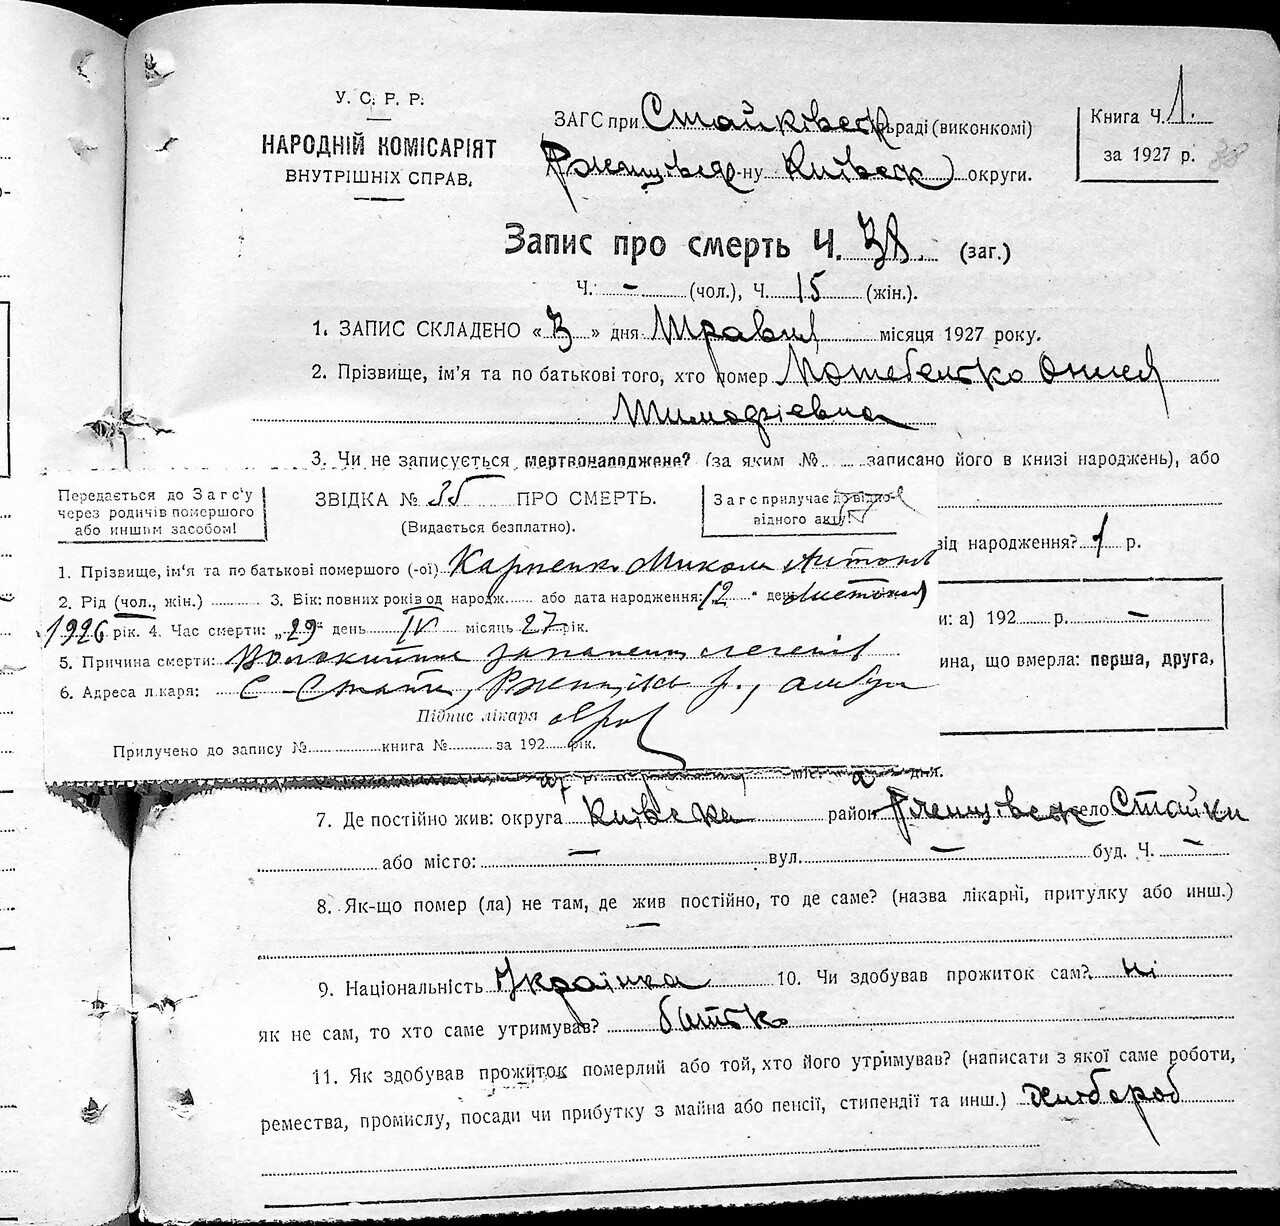 У. С. Р. Р.
НАРОДНІЙ КОМІСАРІЯТ
ВНУТРІШНІХ СПРАВ.
ЗАГС при Стайківск раді (виконкомі)
Ржищівск р-ну Київск округи.
Книга Ч. 1.
за 1927 р. 38
Запис про смерть Ч. 38. (заг.)
Ч. - (чол.), Ч. 15 (жін.).
1. ЗАПИС СКЛАДЕНО «3» дня Травня місяця 1927 року.
2. Прізвище, ім'я та по батькові того, хто помер
Тимофіевна
3. Чи не записується мертвонароджене? (за яким № записано його в книзі народжень), або
від народження? 1 р.
и: а) 192 р. —
ина, що вмерла: перша, друга,
Передається до Загс'у
через родичів помершого
або иншим засобом!
ЗВІДКА № 35 ПРО СМЕРТЬ.
(Видається безплатно).
Загс прилучає до відпо-
відного акту!
1. Прізвище, ім'я та по батькові помершого (-ої) Карпенко Микола Антонов
2. Рід (чол., жін.) 3. Вік: повних років од народж. або дата народження: 12 " день листопад
1926 рік. 4. Час смерти: „29" день IV місяць 27 рік.
5. Причина смерти: запалення легенів
6. Адреса лікаря: с. Стайки, Ржищівськ р.,
Підпис лікаря
Прилучено до запису № книга № за 192 рік.
7. Де постійно жив: округа Київска район Ржищівск село Стайки
або місто: — вул. — буд. Ч. —
8. Як-що помер (ла) не там, де жив постійно, то де саме? (назва лікарні, притулку або инш.)
—
9. Національність Українка 10. Чи здобував прожиток сам? ні
як не сам, то хто саме утримував? батько
11. Як здобував прожиток померлий або той, хто його утримував? (написати з якої саме роботи,
ремества, промислу, посади чи прибутку з майна або пенсії, стипендії та инш.) хлібороб